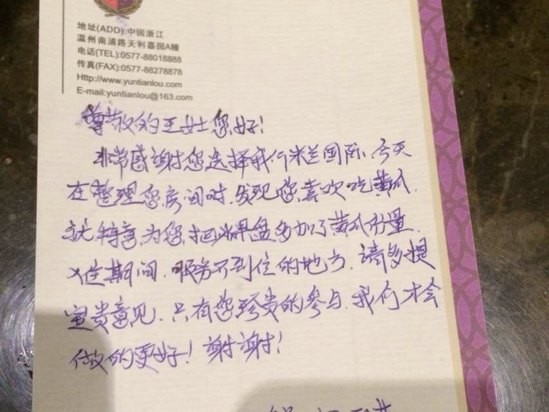 地址(ADD):中国浙江
温州南浦路天利嘉园A幢
电话(TEL):0577-88018888
传真(FAX):0577-88278878
Http://www.yuntianlou.com
E-mail:yuntianlou@163.com
尊敬的王女士您好!
非常感谢您选择我们米兰国际,今天
在整理您房间时,发现您喜欢吃黄瓜,
就特意为您把水果盘多加了黄瓜份量,
入住期间,服务不到位的地方,请多提
宝贵意见,只有您珍贵的参与,我们才会
做的更好!谢谢!